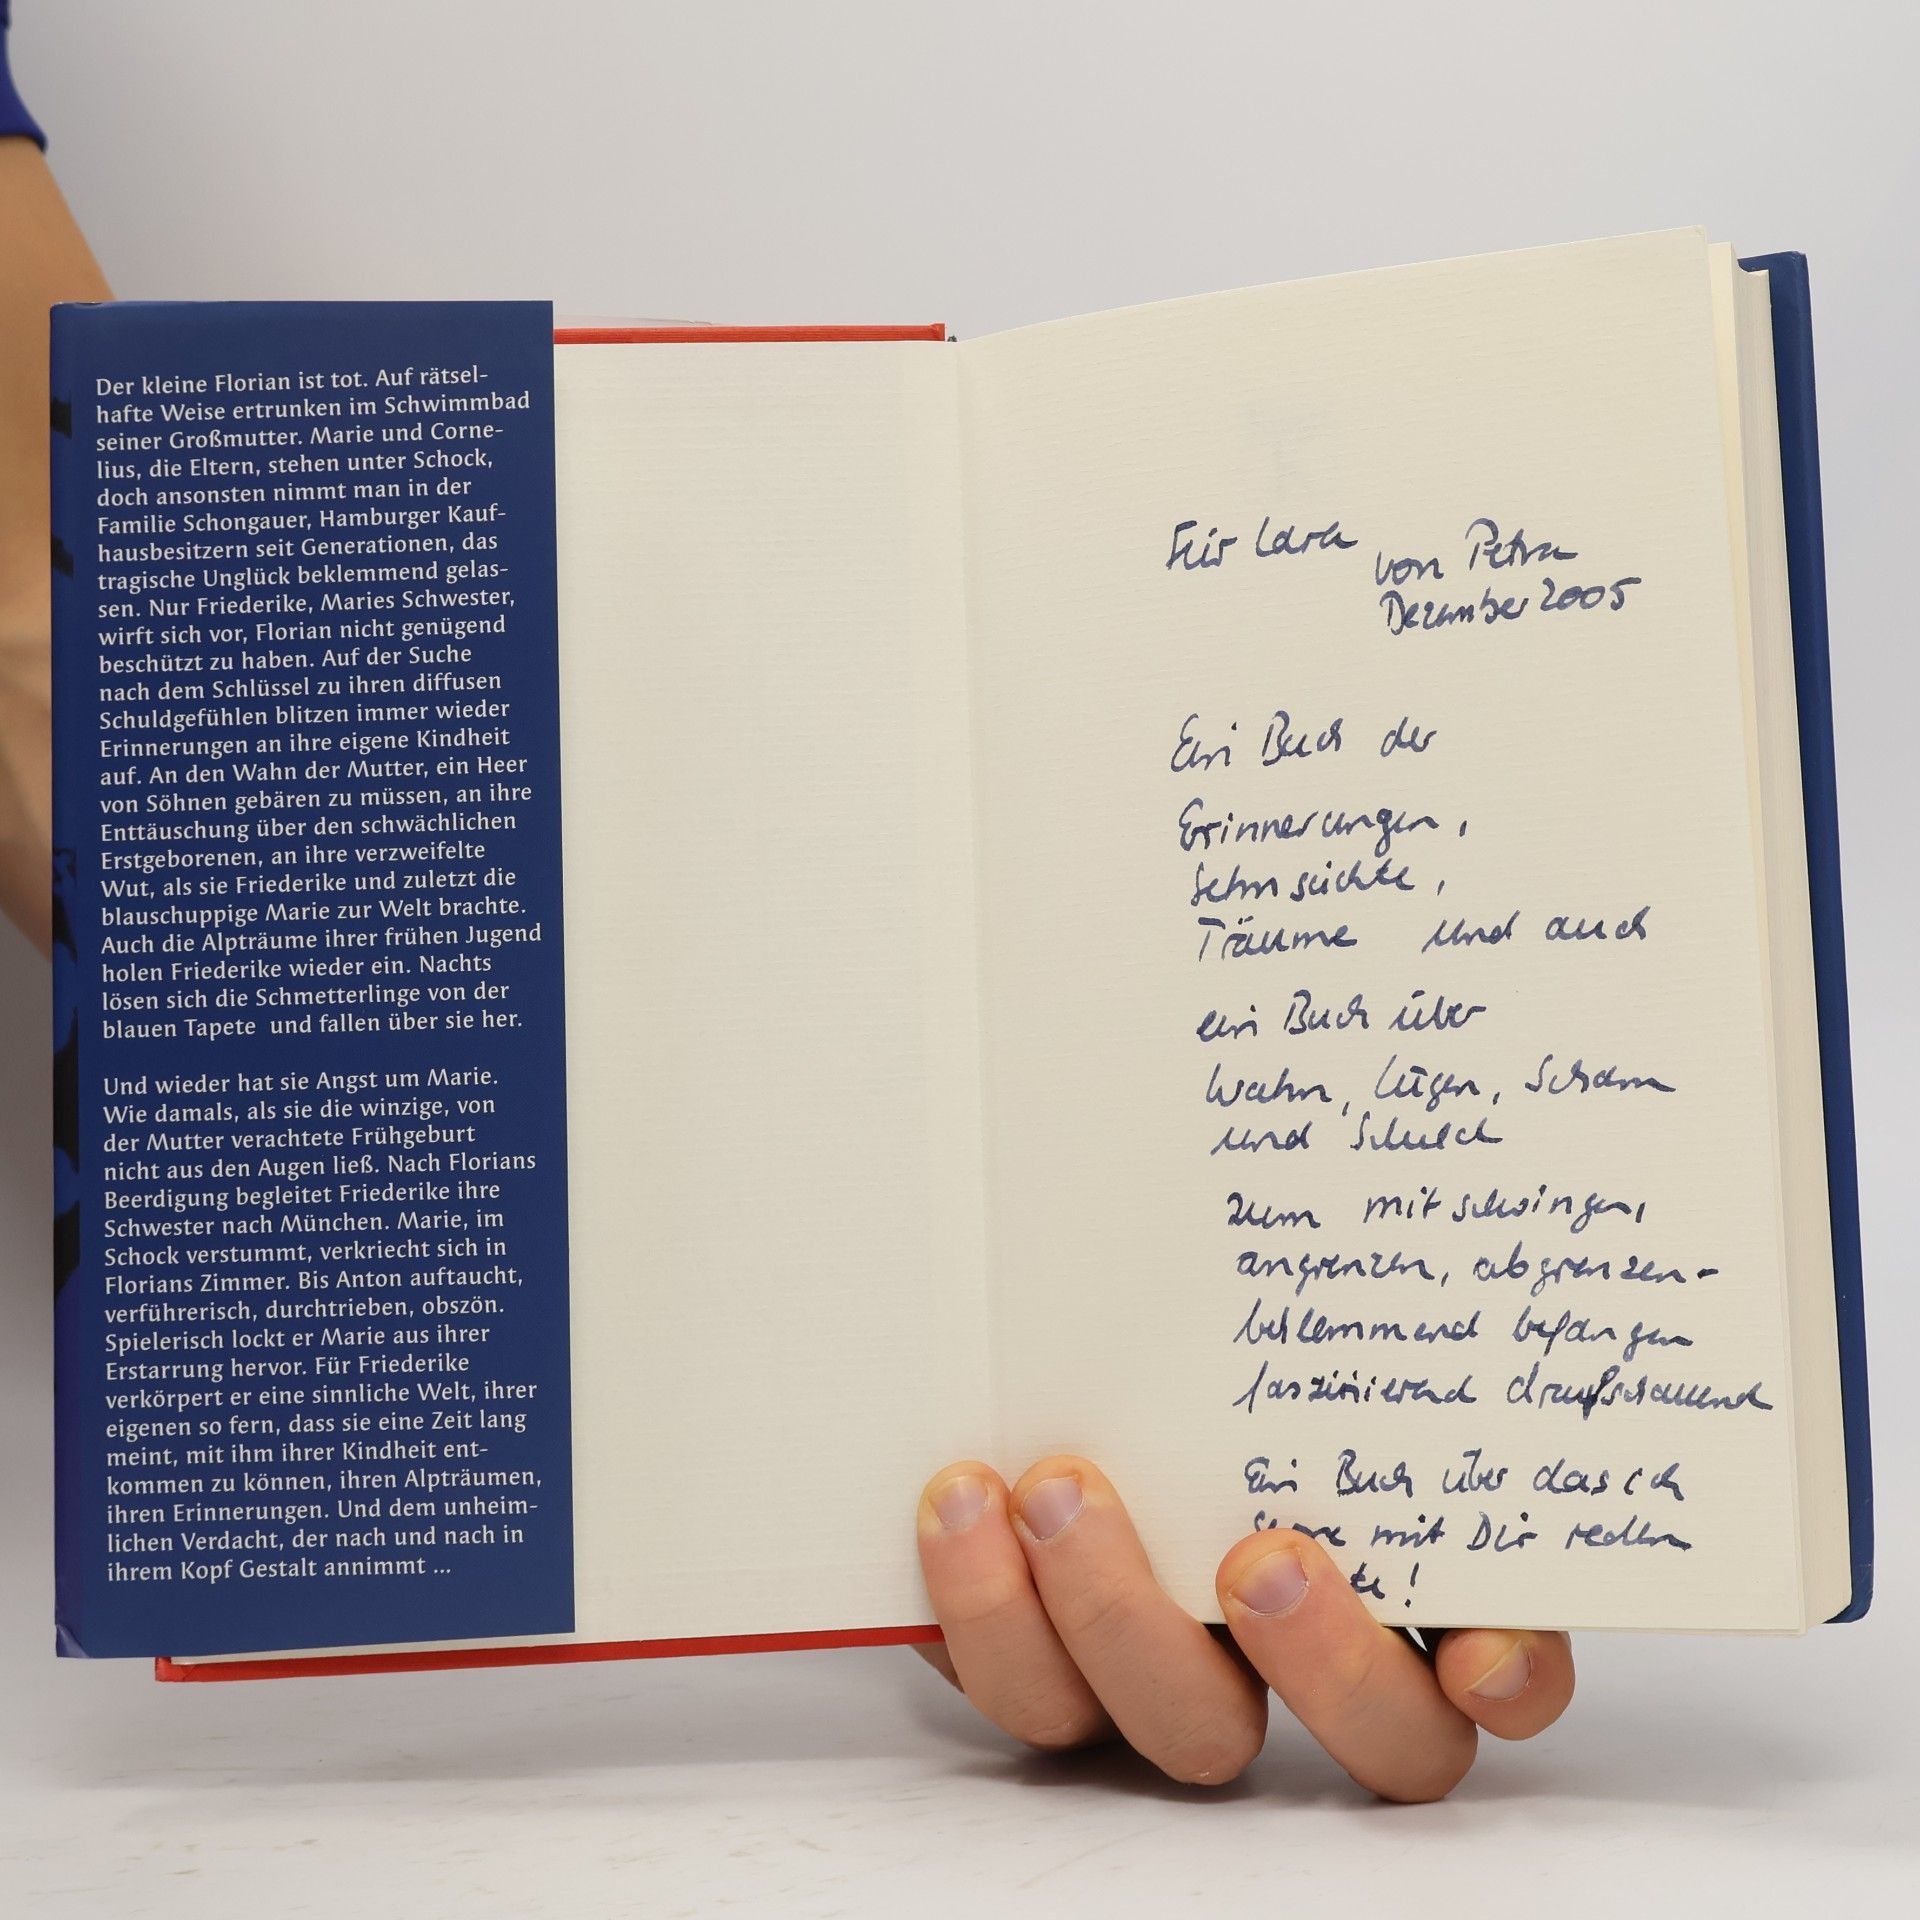 Der kleine Florian ist tot. Auf rätsel-
hafte Weise ertrunken im Schwimmbad
seiner Großmutter. Marie und Corne-
lius, die Eltern, stehen unter Schock,
doch ansonsten nimmt man in der
Familie Schongauer, Hamburger Kauf-
hausbesitzern seit Generationen, das
tragische Unglück beklemmend gelas-
sen. Nur Friederike, Maries Schwester,
wirft sich vor, Florian nicht genügend
beschützt zu haben. Auf der Suche
nach dem Schlüssel zu ihren diffusen
Schuldgefühlen blitzen immer wieder
Erinnerungen an ihre eigene Kindheit
auf. An den Wahn der Mutter, ein Heer
von Söhnen gebären zu müssen, an ihre
Enttäuschung über den schwächlichen
Erstgeborenen, an ihre verzweifelte
Wut, als sie Friederike und zuletzt die
blauschuppige Marie zur Welt brachte.
Auch die Alpträume ihrer frühen Jugend
holen Friederike wieder ein. Nachts
lösen sich die Schmetterlinge von der
blauen Tapete und fallen über sie her.
Und wieder hat sie Angst um Marie.
Wie damals, als sie die winzige, von
der Mutter verachtete Frühgeburt
nicht aus den Augen ließ. Nach Florians
Beerdigung begleitet Friederike ihre
Schwester nach München. Marie, im
Schock verstummt, verkriecht sich in
Florians Zimmer. Bis Anton auftaucht,
verführerisch, durchtrieben, obszön.
Spielerisch lockt er Marie aus ihrer
Erstarrung hervor. Für Friederike
verkörpert er eine sinnliche Welt, ihrer
eigenen so fern, dass sie eine Zeit lang
meint, mit ihm ihrer Kindheit ent-
kommen zu können, ihren Alpträumen,
ihren Erinnerungen. Und dem unheim-
lichen Verdacht, der nach und nach in
ihrem Kopf Gestalt annimmt ...
Für Lara
von Petra
Dezember 2005
Ein Buch der
Erinnerungen,
Sehnsüchte,
Träume und auch
ein Buch über
Wahn, Lügen, Scham
und Schuld
zum mitschwingen,
angrenzen, abgrenzen-
beklemmend befangen
faszinierend draufschauend
Ein Buch über das ich
mit Dir reden
!